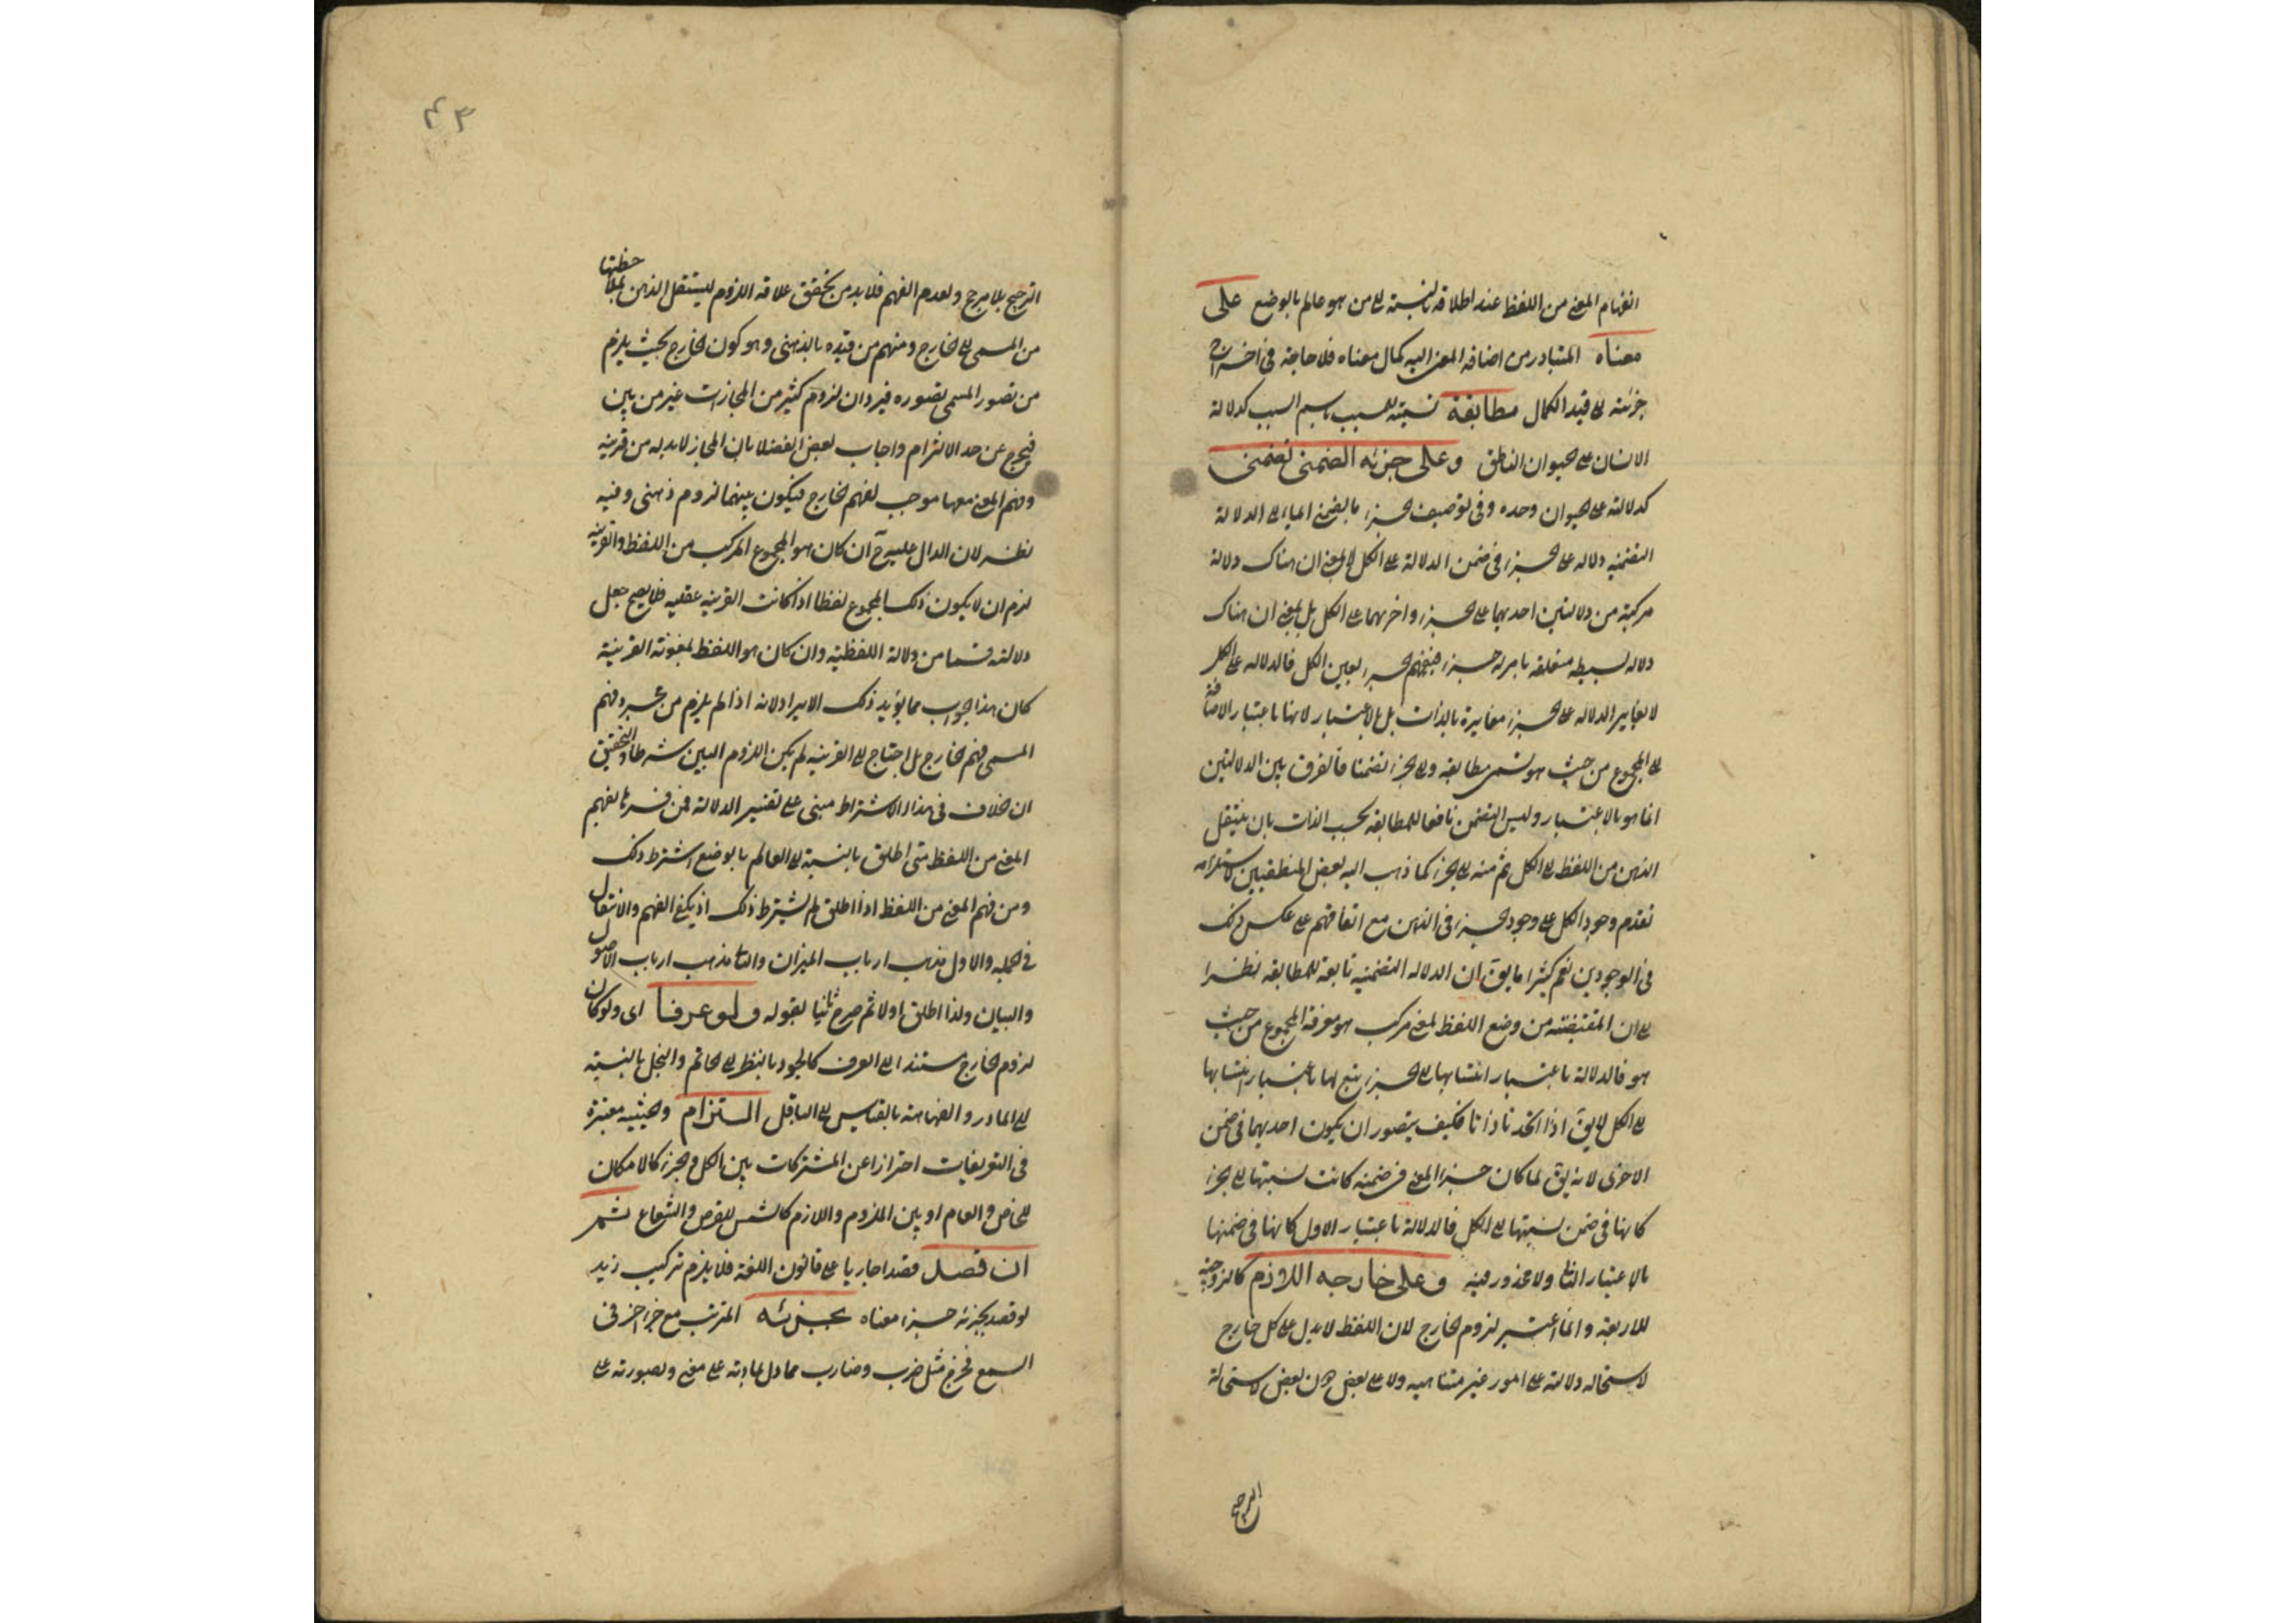 انفهام المعنى من اللفظ عند اطلاقه بالنسبة الى من هو عالم بالوضع على
معناه المتبادر من اضافة المعنى اليه كمال معناه فلا حاجة فى اخراج
جزئه الى قيد الكمال مطابقة تسمية للمسبب باسم السبب كدلالة
الانسان على الحيوان الناطق وعلى جزئه الضمنى تضمن
كدلالته على الحيوان وحده وفى توصيف الجزء بالضمنى ايماء الى ان الدلالة
التضمنية دلالة على الجزء فى ضمن الدلالة على الكل لا بمعنى ان هناك دلالة
مركبة من دلالتين احديهما على الجزء واخريهما على الكل بل بمعنى ان هناك
دلالة بسيطة متعلقة بامر له جزء فينفهم الجزء بعين الكل فالدلالة على الكل
لا يغاير الدلالة على الجزء مغايرة بالذات بل بالاعتبار لانها باعتبار الاضافة
الى المجموع من حيث هو تسمى مطابقة والى الجزء تضمنا فالفرق بين الدلالتين
انما هو بالاعتبار وليس التضمن تابعا للمطابقة بحسب الذات بان ينتقل
الذهن من اللفظ الى الكل ثم منه الى الجزء كما ذهب اليه بعض المنطقيين لاستلزامه
تقدم وجود الكل على وجود الجزء فى الذهن مع اتفاقهم على عكس ذلك
فى الوجودين نعم كثيرا ما يق ان الدلالة التضمنية تابعة للمطابقة نظرا
الى ان المقتضية من وضع اللفظ لمعنى مركب هو معرفة المجموع من حيث
هو فالدلالة باعتبار انتسابها الى الجزء يتبع لها باعتبار انتسابها
الى الكل لا يق اذا اتحدتا ذاتا فكيف يتصور ان يكون احديهما فى ضمن
الاخرى لانه يق لما كان جزء المعنى فى ضمنه كانت نسبتها الى الجزء
كانها فى ضمن نسبتها الى الكل فالدلالة باعتبار الاول كانها فى ضمنها
بالاعتبار الثانى ولا محذور فيه وعلى خارجه اللازم كالزوجية
للاربعة وانما اعتبر لزوم الخارج لان اللفظ لا يدل على كل خارج
لاستحالة دلالته على امور غير متناهية ولا على بعض دون بعض لاستحالة
الترجيح
٤٣
الترجيح بلا مرجح ولعدم الفهم فلا بد من تحقق علاقة اللزوم لينتقل الذهن بملاحظتها
من المسمى الى الخارج ومنهم من قيده بالذهنى وهو كون الخارج بحيث يلزم
من تصور المسمى تصوره فيرد ان لزوم كثير من المجازات غير من بين
فيخرج عن حد الالتزام واجاب بعض الفضلا بان المجاز لا بد له من قرينة
وفهم المعنى معها موجب لفهم الخارج فيكون بينهما لزوم ذهنى وفيه
نظر لان الدال عليه ح ان كان هو المجموع المركب من اللفظ والقرينة
لزم ان لا يكون ذلك المجموع لفظا اذا كانت القرينة عقلية فلا يصح جعل
دلالته قسما من دلالة اللفظية وان كان هو اللفظ بمعونة القرينة
كان هذا الجواب مما يؤيد ذلك الايراد لانه اذا لم يلزم من مجرد فهم
المسمى فهم الخارج بل احتاج الى القرينة لم يكن اللزوم البين شرطا والتحقيق
ان الخلاف فى هذا الاشتراط مبنى على تفسير الدلالة فمن فسرها بفهم
المعنى من اللفظ متى اطلق بالنسبة الى العالم بالوضع اشترط ذلك
ومن فهم المعنى من اللفظ اذا اطلق لم يشترط ذلك اذ يكفى الفهم والانتقال
فى الجملة والاول مذهب ارباب الميزان والثانى مذهب ارباب الاصول
والبيان ولذا اطلق اولا ثم صرح ثانيا بقوله ولو عرفا اى ولو كان
لزوم الخارج مستندا الى العرف كالجود بالنظر الى الحاتم والبخل بالنسبة
الى المادر والفهاهة بالقياس الى الباقل التزام والحيثية معتبرة
فى التعريفات احترازا عن المشتركات بين الكل والجزء كالامكان
للخاص والعام او بين الملزوم واللازم كالشمس للقرص والشعاع ثم
ان قصد قصدا جاريا على قانون اللغة فلا يلزم تركيب زيد
لو قصد بجزئه جزء معناه بجزئه المترتب مع جزء اخر فى
السمع فخرج مثل ضرب وضارب مما دل بمادته على معنى وبصورته على